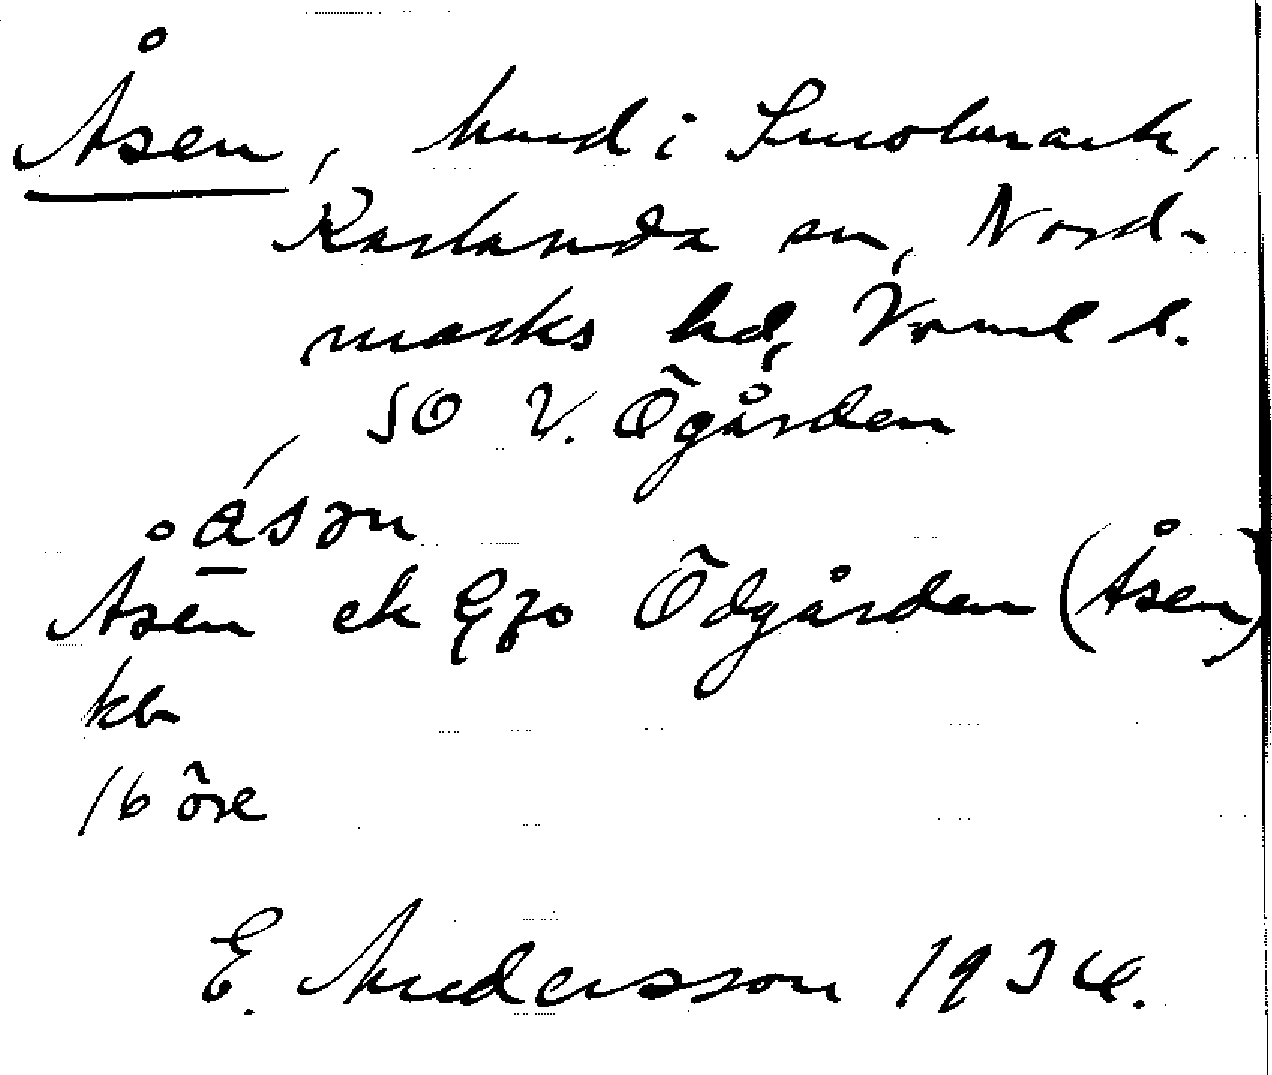 Åsen, hmd i Smolmark,
Karlanda sn, Nord-
marks hd, Värml l.
SO V. Ögården
åsən
Åsen ek Ödgården (Åsen)
kbr
16 öre
E. Andersson 1934.